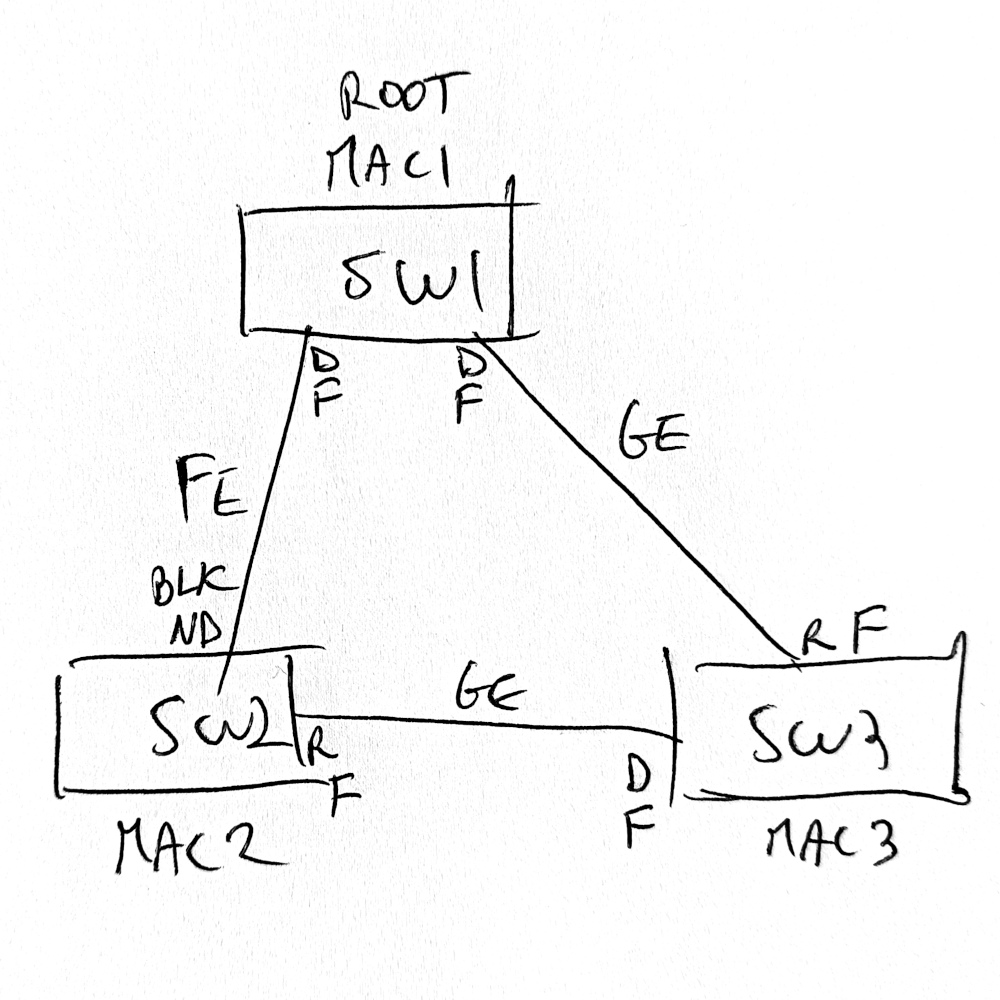 ROOT
MAC1
SW1
D
F
D
F
GE
FE
BLK
ND
R F
SW2
GE
SW3
R
F
D
F
MAC2
MAC3